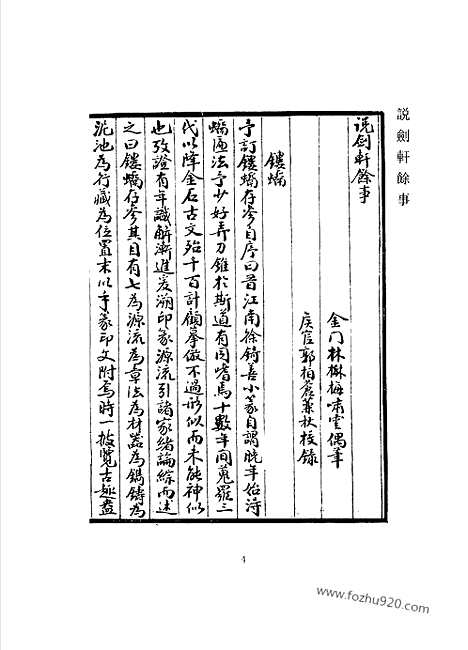 說劍軒餘事
說劍軒餘事
金门林樹梅嘯雲偶筆
矦官郭柏蒼蒹秋校錄
鏤蝸
予訂鏤蝸存参自序曰昔江南徐鍇善小篆自謂晩年始淂
蝸匾法予少好弄刀錐扵斯道有同嗜焉十數年间蒐羅三
代以降金石古文殆千百計顧摹倣不過形似而未能神似
也攷證有年識解漸進爰溯印篆源流引諸家緒論綜而述
之曰鏤蝸存参其目有七為源流為章法為材器為鎸鑄為
泥池為行藏為位置末以手篆印文附焉時一披覽古趣盎
4
www.fozhu920.com